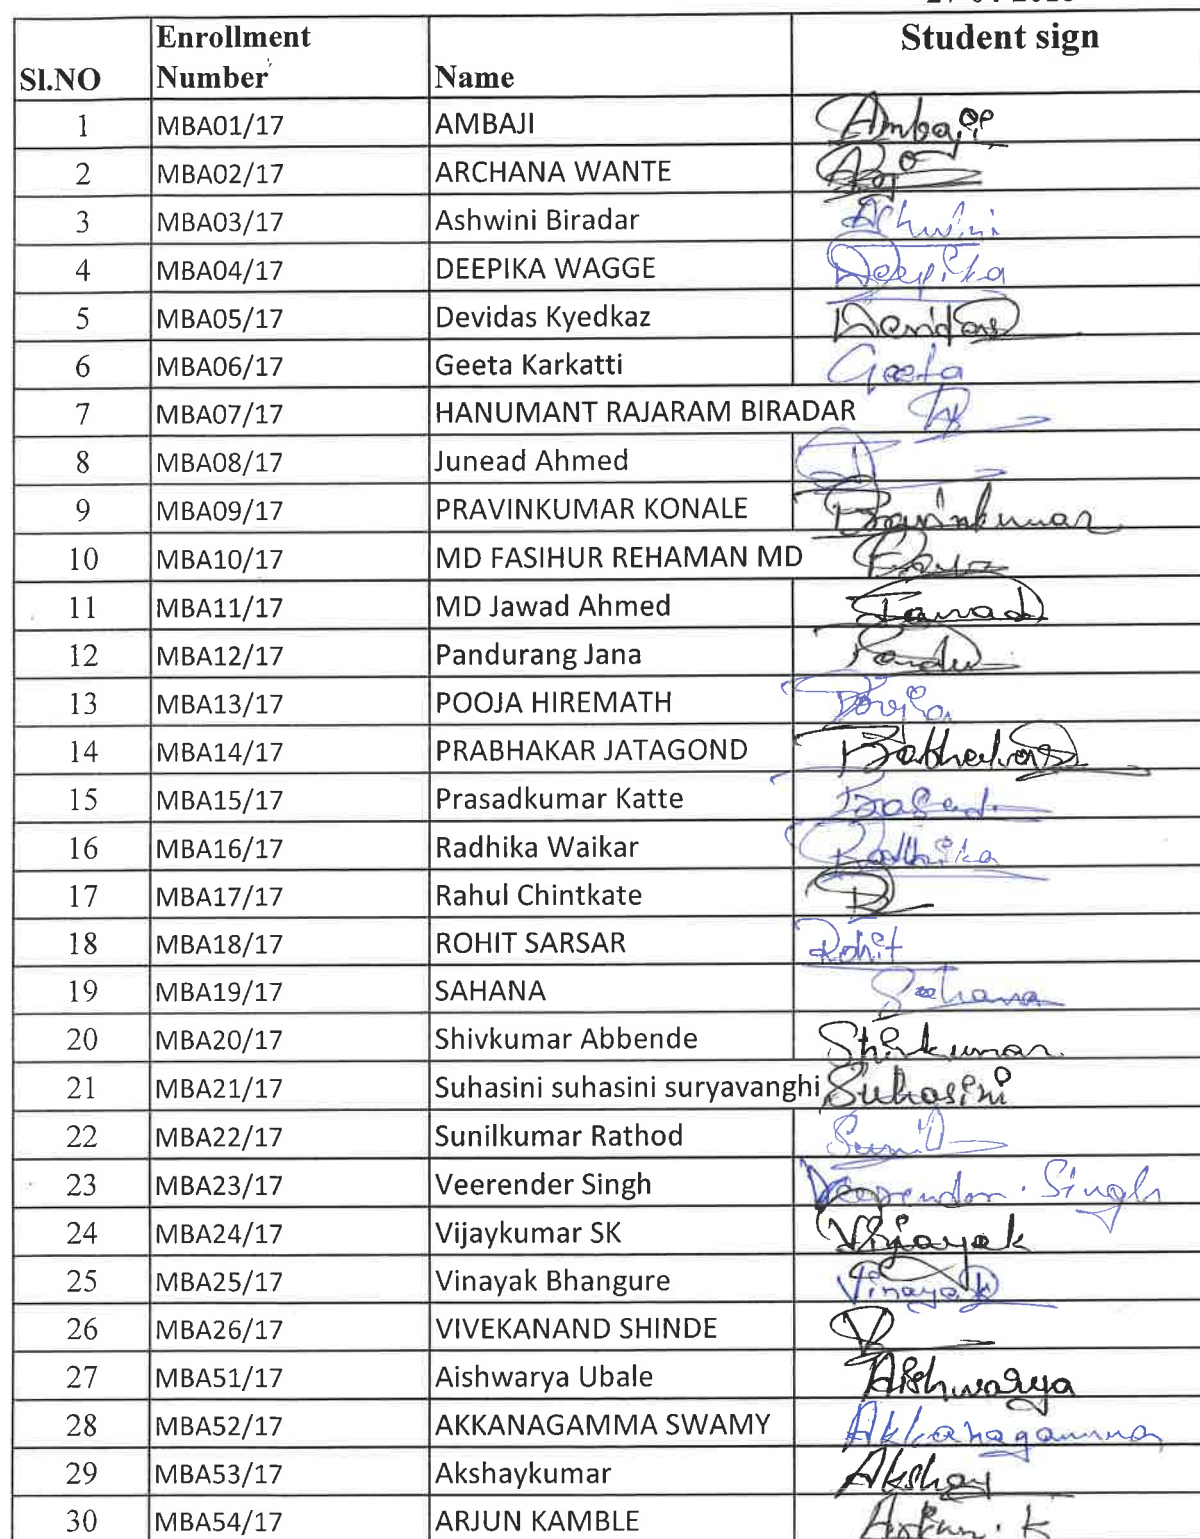 Enrollment Student sign
Sl.NO Number Name
1 MBA01/17 AMBAJI Ambaji
2 MBA02/17 ARCHANA WANTE
3 MBA03/17 Ashwini Biradar Ashwini
4 MBA04/17 DEEPIKA WAGGE Deepika
5 MBA05/17 Devidas Kyedkaz Devidas
6 MBA06/17 Geeta Karkatti Geeta
7 MBA07/17 HANUMANT RAJARAM BIRADAR
8 MBA08/17 Junead Ahmed
9 MBA09/17 PRAVINKUMAR KONALE Pravinkumar
10 MBA10/17 MD FASIHUR REHAMAN MD
11 MBA11/17 MD Jawad Ahmed Jawad
12 MBA12/17 Pandurang Jana Pandu
13 MBA13/17 POOJA HIREMATH Pooja
14 MBA14/17 PRABHAKAR JATAGOND Prabhakar
15 MBA15/17 Prasadkumar Katte Prasad
16 MBA16/17 Radhika Waikar Radhika
17 MBA17/17 Rahul Chintkate
18 MBA18/17 ROHIT SARSAR Rohit
19 MBA19/17 SAHANA Sahana
20 MBA20/17 Shivkumar Abbende Shivkumar
21 MBA21/17 Suhasini suhasini suryavanghi Suhasini
22 MBA22/17 Sunilkumar Rathod Sunil
23 MBA23/17 Veerender Singh Veerender. Singh
24 MBA24/17 Vijaykumar SK Vijayak
25 MBA25/17 Vinayak Bhangure Vinayak
26 MBA26/17 VIVEKANAND SHINDE
27 MBA51/17 Aishwarya Ubale Aishwarya
28 MBA52/17 AKKANAGAMMA SWAMY Akkanagamma
29 MBA53/17 Akshaykumar Akshay
30 MBA54/17 ARJUN KAMBLE Arjun. K